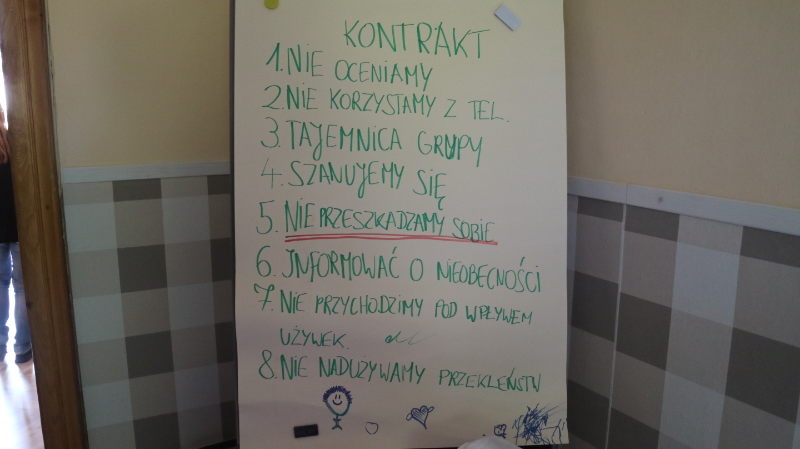 KONTRAKT
1. NIE OCENIAMY
2. NIE KORZYSTAMY Z TEL.
3. TAJEMNICA GRUPY
4. SZANUJEMY SIĘ
5. NIE PRZESZKADZAMY SOBIE
6. INFORMOWAĆ O NIEOBECNOŚCI
7. NIE PRZYCHODZIMY POD WPŁYWEM
UŻYWEK.
8. NIE NADUŻYWAMY PRZEKLEŃSTW